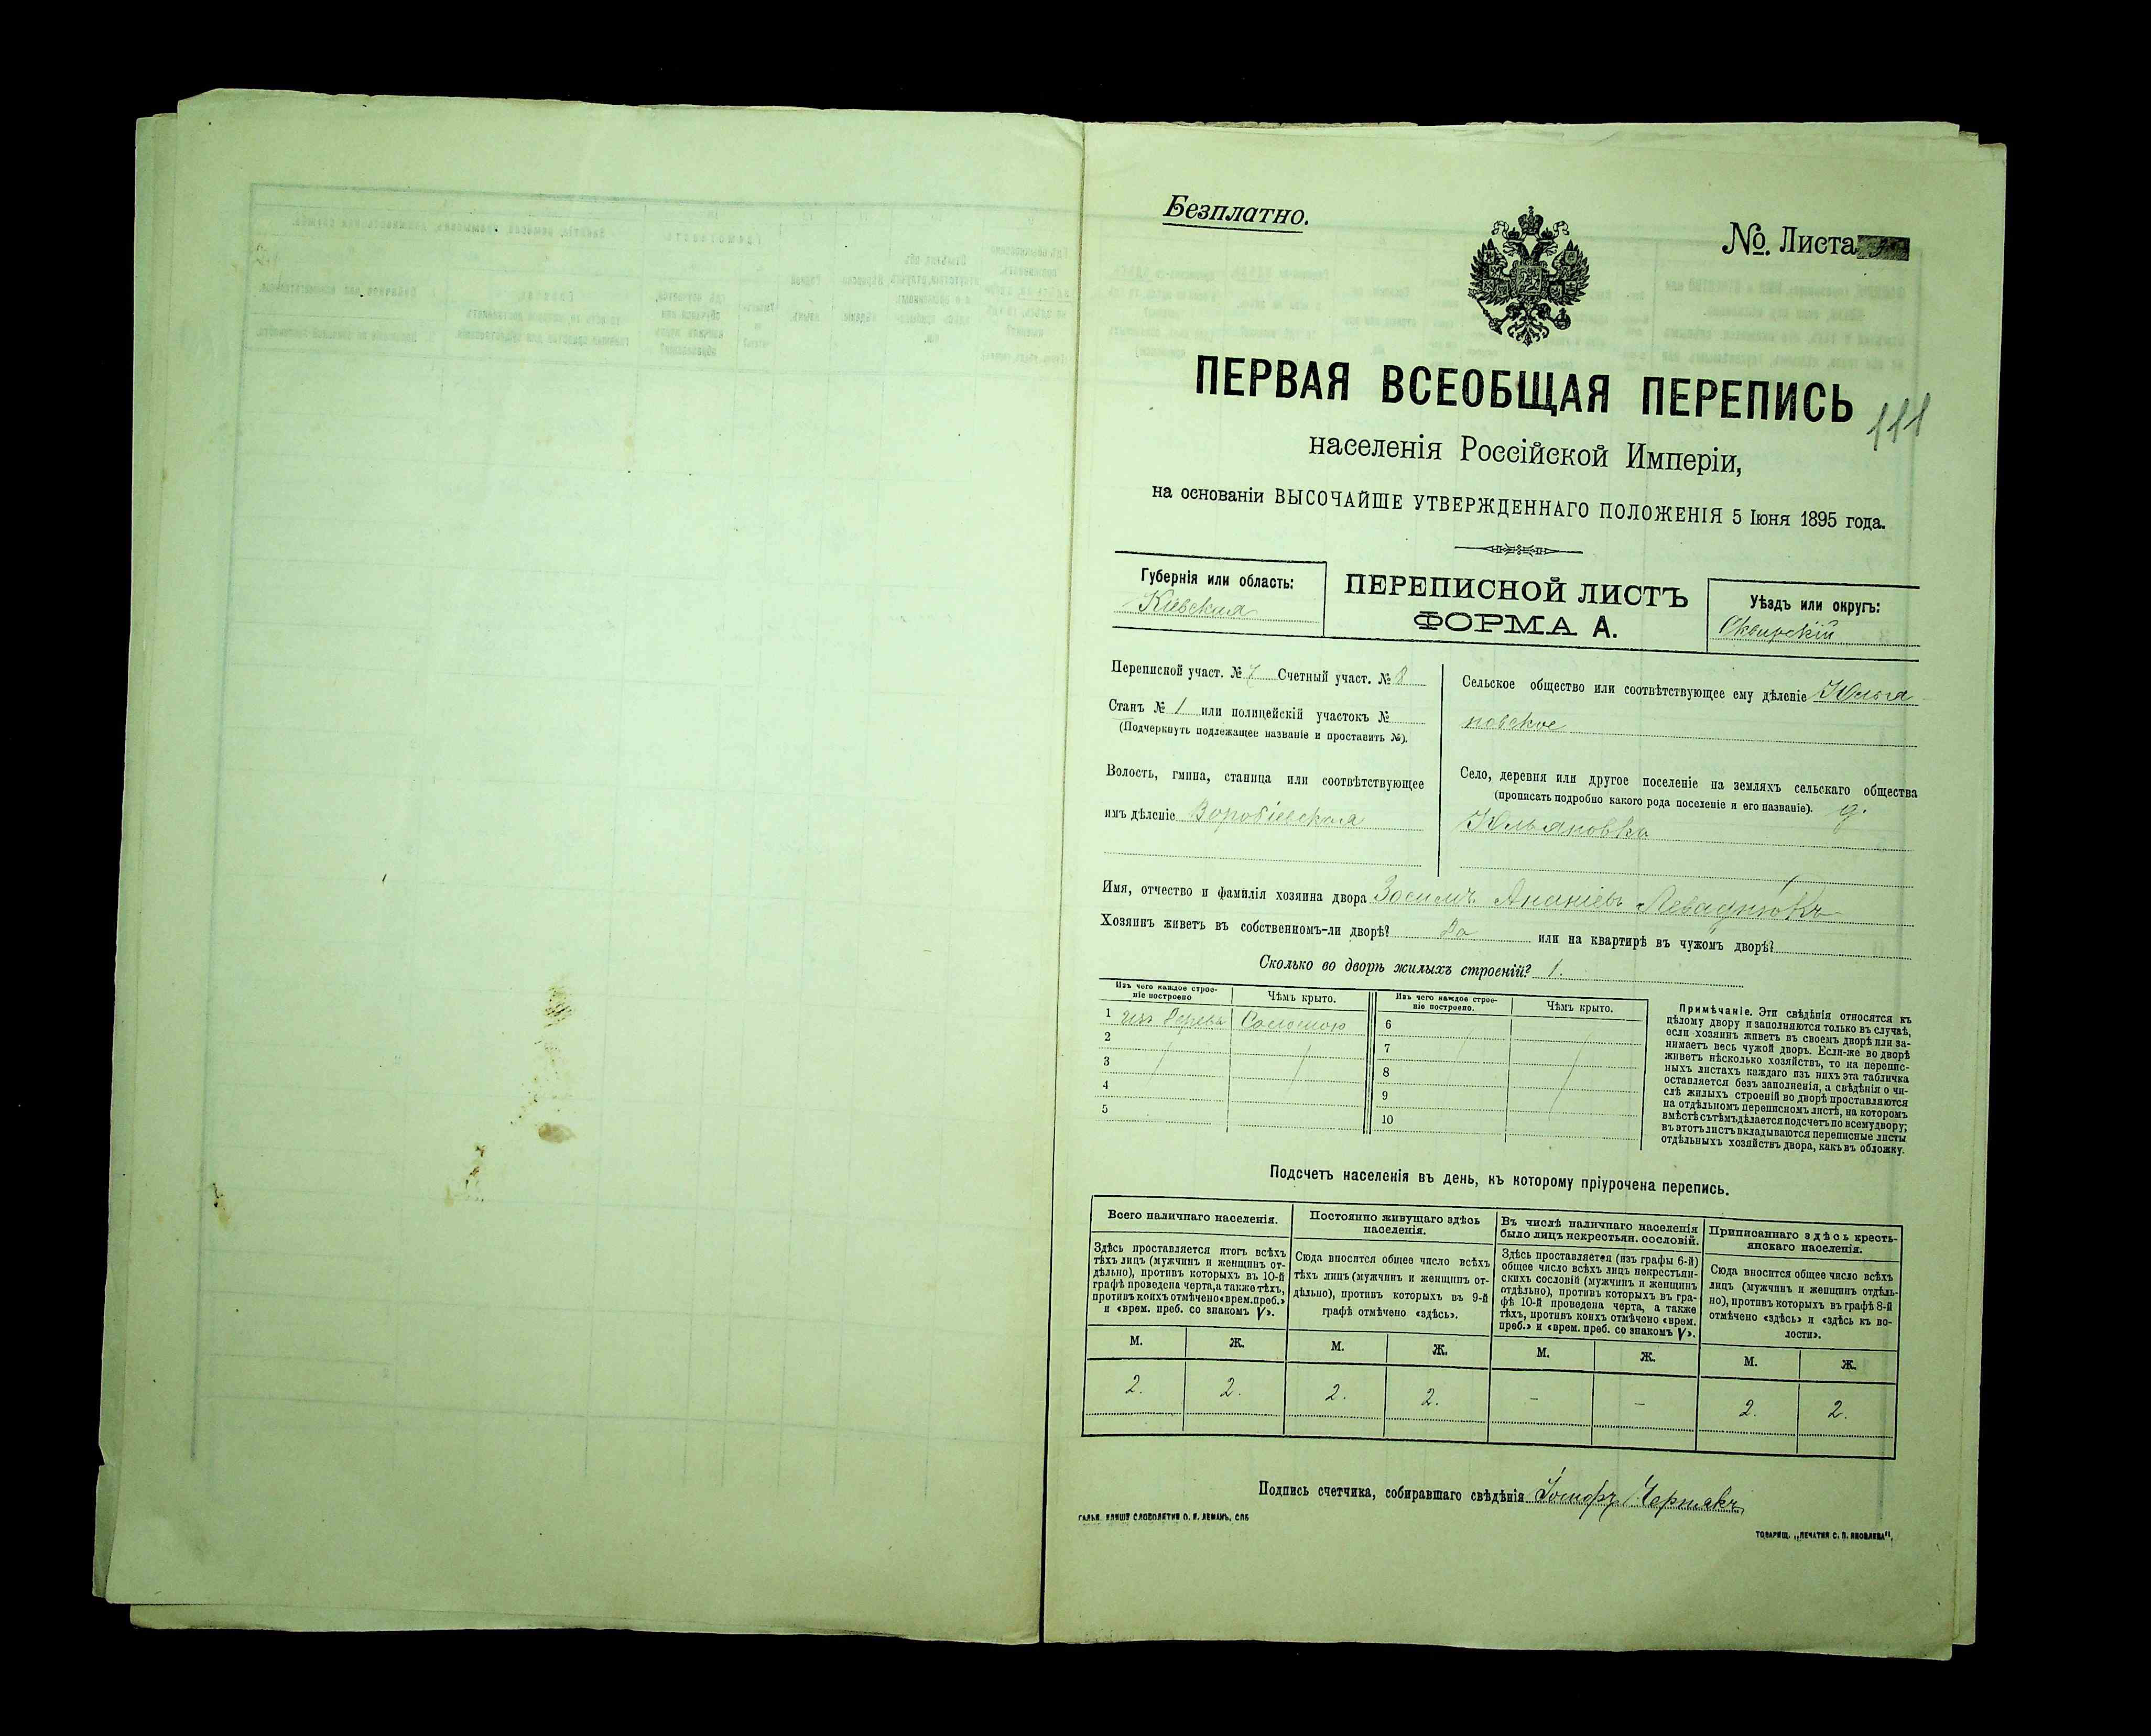 Безплатно.
№. Листа
ПЕРВАЯ ВСЕОБЩАЯ ПЕРЕПИСЬ
111
населенія Россійской Имперіи,
на основаніи ВЫСОЧАЙШЕ УТВЕРЖДЕННАГО ПОЛОЖЕНІЯ 5 Іюня 1895 года.
Губернія или область:
Кіевская
ПЕРЕПИСНОЙ ЛИСТЪ
ФОРМА А.
Уѣздъ или округъ:
Сквирскій
Переписной участ. № 7 Счетный участ. № 8
Станъ № 1 или полицейскій участокъ №
(Подчеркнуть подлежащее названіе и проставить №).
Волость, гмина, станица или соотвѣтствующее
имъ дѣленіе Воробіевская
Сельское общество или соотвѣтствующее ему дѣленіе Юлья
новское
Село, деревня или другое поселеніе на земляхъ сельскаго общества
(прописать подробно какого рода поселеніе и его названіе). д.
Юльяновка
Имя, отчество и фамилія хозяина двора Зосимъ Ананіевъ Леваднюкъ
Хозяинъ живетъ въ собственномъ-ли дворѣ? Да или на квартирѣ въ чужомъ дворѣ?
Сколько во дворѣ жилыхъ строеній? 1.
Изъ чего каждое строе-
ніе построено
Чѣмъ крыто.
Изъ чего каждое строе-
ніе построено.
Чѣмъ крыто.
1 изъ дерева Соломою
2
3
4
5
6
7
8
9
10
Примѣчаніе. Эти свѣдѣнія относятся къ
цѣлому двору и заполняются только въ случаѣ,
если хозяинъ живетъ въ своемъ дворѣ или за-
нимаетъ весь чужой дворъ. Если-же во дворѣ
живетъ нѣсколько хозяйствъ, то на перепис-
ныхъ листахъ каждаго изъ нихъ эта табличка
оставляется безъ заполненія, а свѣдѣнія о чи-
слѣ жилыхъ строеній во дворѣ проставляются
на отдѣльномъ переписномъ листѣ, на которомъ
вмѣстѣ съ тѣмъ дѣлается подсчетъ по всему двору;
въ этотъ листъ вкладываются переписные листы
отдѣльныхъ хозяйствъ двора, какъ въ обложку.
Подсчетъ населенія въ день, къ которому пріурочена перепись.
Всего наличнаго населенія.
Здѣсь проставляется итогъ всѣхъ
тѣхъ лицъ (мужчинъ и женщинъ от-
дѣльно), противъ которыхъ въ 10-й
графѣ проведена черта, а также тѣхъ,
противъ коихъ отмѣчено «врем. преб.»
и «врем. преб. со знакомъ V».
Постоянно живущаго здѣсь
населенія.
Сюда вносится общее число всѣхъ
тѣхъ лицъ (мужчинъ и женщинъ от-
дѣльно), противъ которыхъ въ 9-й
графѣ отмѣчено «здѣсь».
Въ числѣ наличнаго населенія
было лицъ некрестьян. сословій.
Здѣсь проставляется (изъ графы 6-й)
общее число всѣхъ лицъ некрестьян-
скихъ сословій (мужчинъ и женщинъ
отдѣльно), противъ которыхъ въ гра-
фѣ 10-й проведена черта, а также
тѣхъ, противъ коихъ отмѣчено «врем.
преб.» и «врем. преб. со знакомъ V».
Приписаннаго здѣсь кресть-
янскаго населенія.
Сюда вносится общее число всѣхъ
лицъ (мужчинъ и женщинъ отдѣль-
но), противъ которыхъ въ графѣ 8-й
отмѣчено «здѣсь» и «здѣсь къ во-
лости».
М. Ж. М. Ж. М. Ж. М. Ж.
2. 2. 2. 2. - - 2. 2.
Подпись счетчика, собиравшаго свѣдѣнія Чермакъ
ТОВАРИЩ. „ПЕЧАТНЯ С. П. ЯКОВЛЕВА",